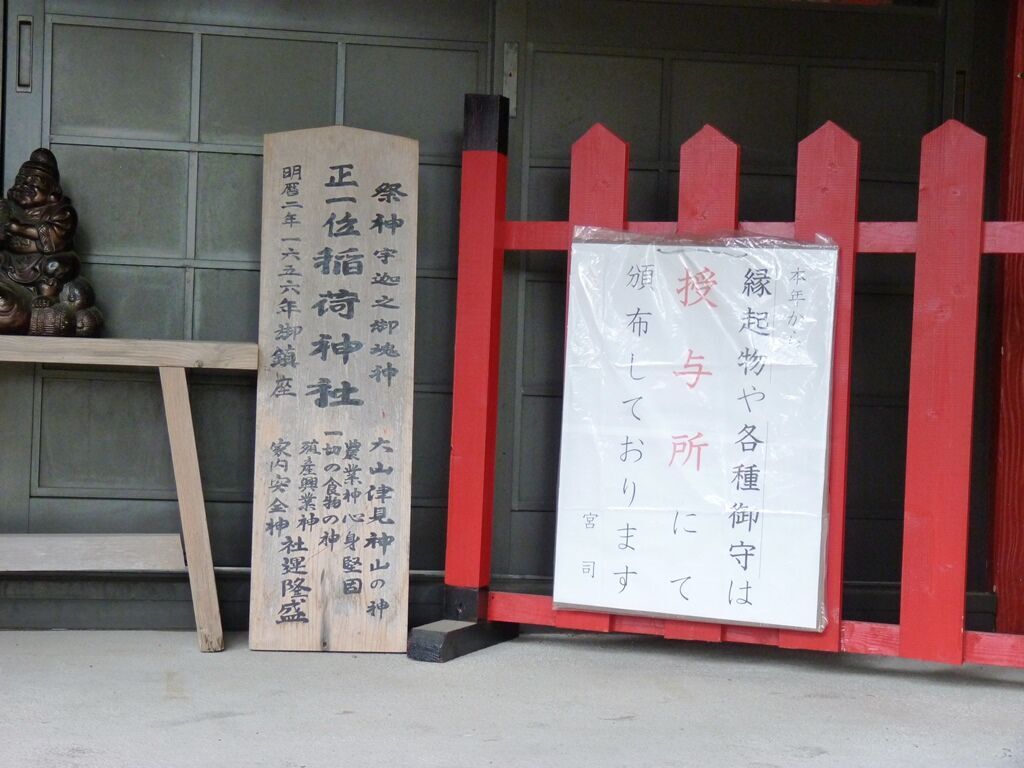 祭神 宇迦之御魂神
正一位稲荷神社
明暦二年一六五六年御鎮座
大山津見神山の神
農業神心身堅固
一切の食物の神
殖産興業神
家内安全神
社運隆盛
本年から
縁起物や各種御守は
授与所にて
頒布しております
宮司